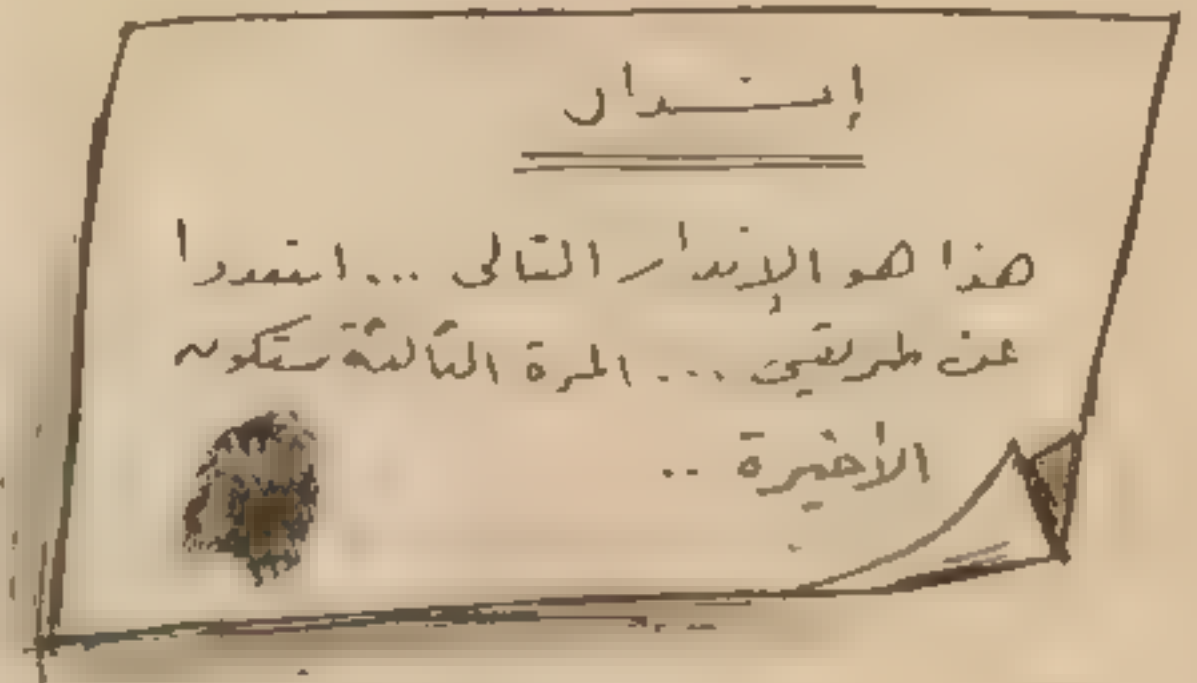 إنذار
هذا هو الإنذار التالى ... ابتعدوا
عن طريقي ... المرة الثالثة ستكون
الأخيرة ..